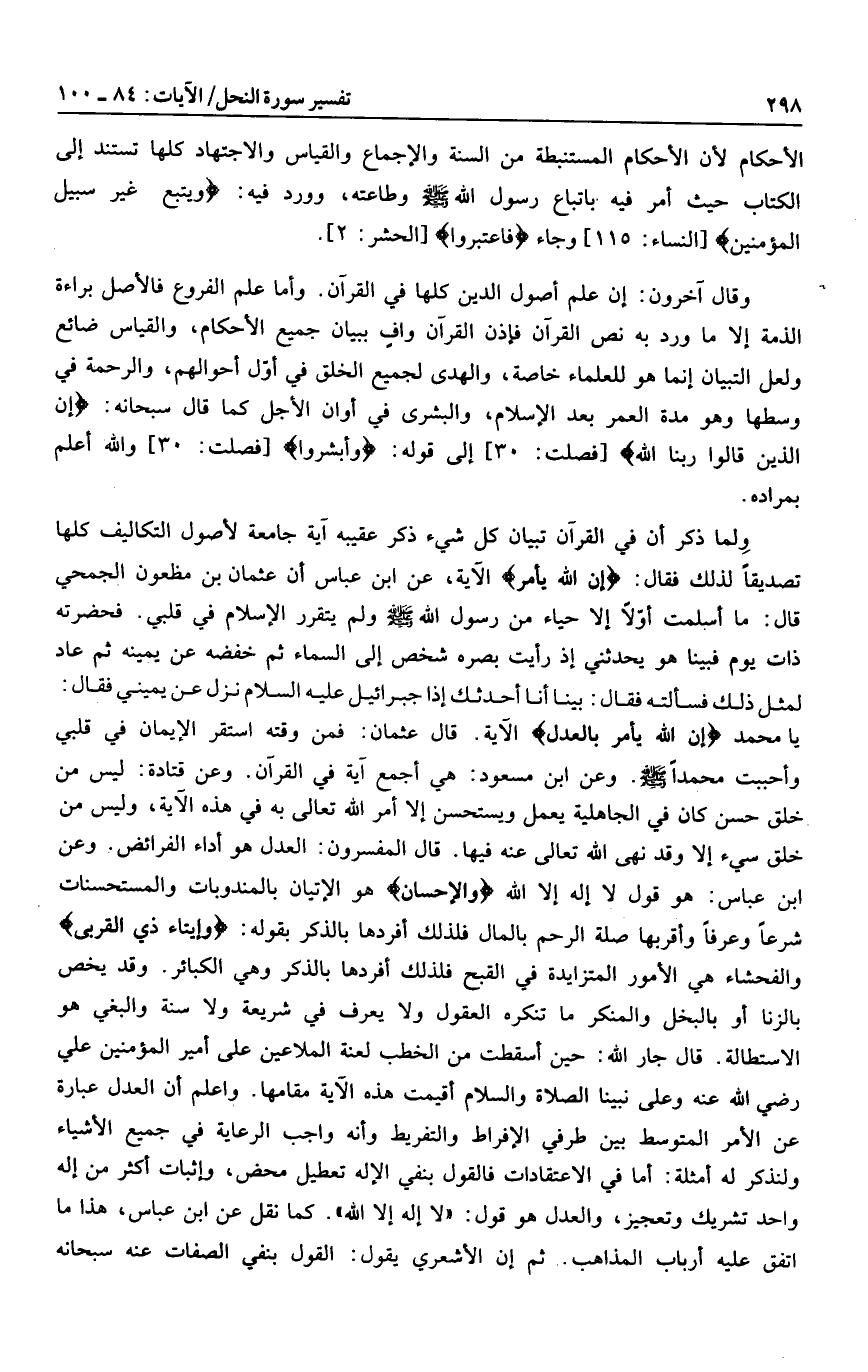 ٢٩٨ تفسير سورة النحل/ الآيات: ٨٤ - ١٠٠
الأحكام لأن الأحكام المستنبطة من السنة والإجماع والقياس والاجتهاد كلها تستند إلى
الكتاب حيث أمر فيه باتباع رسول الله ﷺ وطاعته، وورد فيه: ﴿ويتبع غير سبيل
المؤمنين﴾ [النساء: ١١٥] وجاء ﴿فاعتبروا﴾ [الحشر: ٢].
وقال آخرون: إن علم أصول الدين كلها في القرآن. وأما علم الفروع فالأصل براءة
الذمة إلا ما ورد به نص القرآن فإذن القرآن وافٍ ببيان جميع الأحكام، والقياس ضائع
ولعل التبيان إنما هو للعلماء خاصة، والهدى لجميع الخلق في أوّل أحوالهم، والرحمة في
وسطها وهو مدة العمر بعد الإسلام، والبشرى في أوان الأجل كما قال سبحانه: ﴿إن
الذين قالوا ربنا الله﴾ [فصلت: ٣٠] إلى قوله: ﴿وأبشروا﴾ [فصلت: ٣٠] والله أعلم
بمراده.
ولما ذكر أن في القرآن تبيان كل شيء ذكر عقيبه آية جامعة لأصول التكاليف كلها
تصديقاً لذلك فقال: ﴿إن الله يأمر﴾ الآية، عن ابن عباس أن عثمان بن مظعون الجمحي
قال: ما أسلمت أوّلاً إلا حياء من رسول الله ﷺ ولم يتقرر الإسلام في قلبي. فحضرته
ذات يوم فبينا هو يحدثني إذ رأيت بصره شخص إلى السماء ثم خفضه عن يمينه ثم عاد
لمثل ذلك فسألته فقال: بينا أنا أحدثك إذا جبرائيل عليه السلام نزل عن يميني فقال:
يا محمد ﴿إن الله يأمر بالعدل﴾ الآية. قال عثمان: فمن وقته استقر الإيمان في قلبي
وأحببت محمداً ﷺ. وعن ابن مسعود: هي أجمع آية في القرآن. وعن قتادة: ليس من
خلق حسن كان في الجاهلية يعمل ويستحسن إلا أمر الله تعالى به في هذه الآية، وليس من
خلق سيء إلا وقد نهى الله تعالى عنه فيها. قال المفسرون: العدل هو أداء الفرائض. وعن
ابن عباس: هو قول لا إله إلا الله ﴿والإحسان﴾ هو الإتيان بالمندوبات والمستحسنات
شرعاً وعرفاً وأقربها صلة الرحم بالمال فلذلك أفردها بالذكر بقوله: ﴿وإيتاء ذي القربى﴾
والفحشاء هي الأمور المتزايدة في القبح فلذلك أفردها بالذكر وهي الكبائر. وقد يخص
بالزنا أو بالبخل والمنكر ما تنكره العقول ولا يعرف في شريعة ولا سنة والبغي هو
الاستطالة. قال جار الله: حين أسقطت من الخطب لعنة الملاعين على أمير المؤمنين علي
رضي الله عنه وعلى نبينا الصلاة والسلام أقيمت هذه الآية مقامها. واعلم أن العدل عبارة
عن الأمر المتوسط بين طرفي الإفراط والتفريط وأنه واجب الرعاية في جميع الأشياء
ولنذكر له أمثلة: أما في الاعتقادات فالقول بنفي الإله تعطيل محض، وإثبات أكثر من إله
واحد تشريك وتعجيز، والعدل هو قول: «لا إله إلا الله». كما نقل عن ابن عباس، هذا ما
اتفق عليه أرباب المذاهب. ثم إن الأشعري يقول: القول بنفي الصفات عنه سبحانه